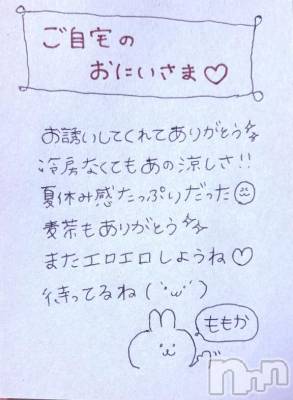 ご自宅の
おにいさま♡
お誘いしてくれてありがとう
冷房なくてもあの涼しさ!!
夏休み感たっぷりだった
麦茶もありがとう
またエロエロしようね♡
待ってるね(´˙ω˙`)
ももか